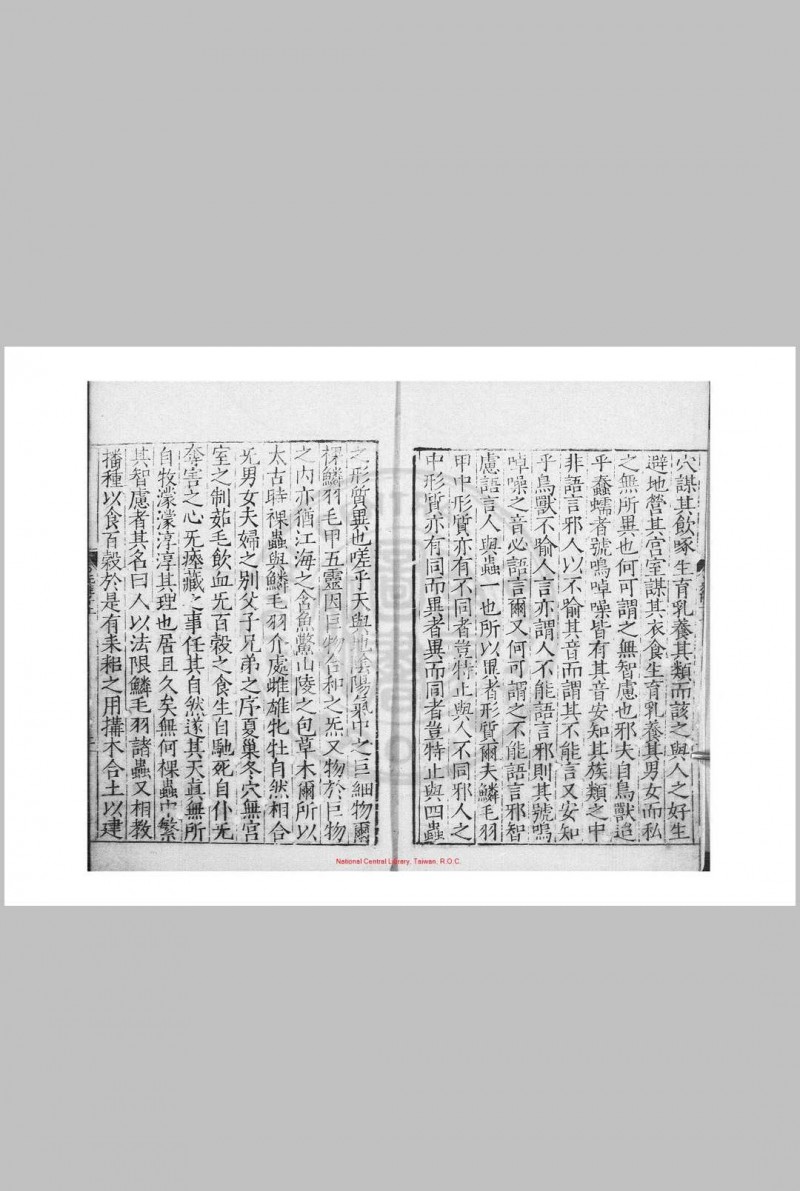 穴謀其飲啄生育乳養其類而該之與人之好生
避地營其宮室謀其衣食生育乳養其男女而私
之無所異也何可謂之無智慮也邪夫自鳥獸迨
乎蠢蠕者號鳴啅噪皆有其音安知其族類之中
非語言邪人以不喻其音而謂其不能言又安知
乎鳥獸不喻人言亦謂人不能語言邪則其號鳴
啅噪之音必語言爾又何可謂之不能語言邪智
慮語言人與蟲一也所以異者形質爾夫鱗毛羽
甲中形質亦有不同者豈特止與人不同邪人之
中形質亦有同而異者異而同者豈特止與四蟲
之形質異也嗟乎天與地陰陽氣中之巨細物爾
倮鱗羽毛甲五靈因巨物合和之炁又物於巨物
之內亦猶江海之含魚鱉山陵之包草木爾所以
太古時裸蟲與鱗毛羽介處雌雄牝牡自然相合
旡男女夫婦之別父子兄弟之序夏巢冬穴無宮
室之制茹毛飲血旡百穀之食生自馳死自仆旡
奪害之心旡瘞藏之事任其自然遂其天真無所
自牧濛濛淳淳其理也居且久矣無何倮蟲中繁
其智慮者其名曰人以法限鱗毛羽諸蟲又相教
播種以食百穀於是有耒耜之用搆木合土以建
National Central Library, Taiwan, R.O.C.